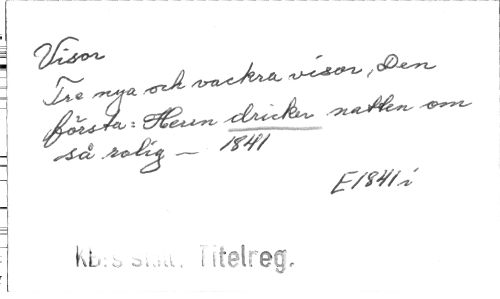 Visor
Tre nya och vackra visor, Den
första: Herrn dricker natten om
så rolig — 1841
E1841 i
KB:s Titelreg.